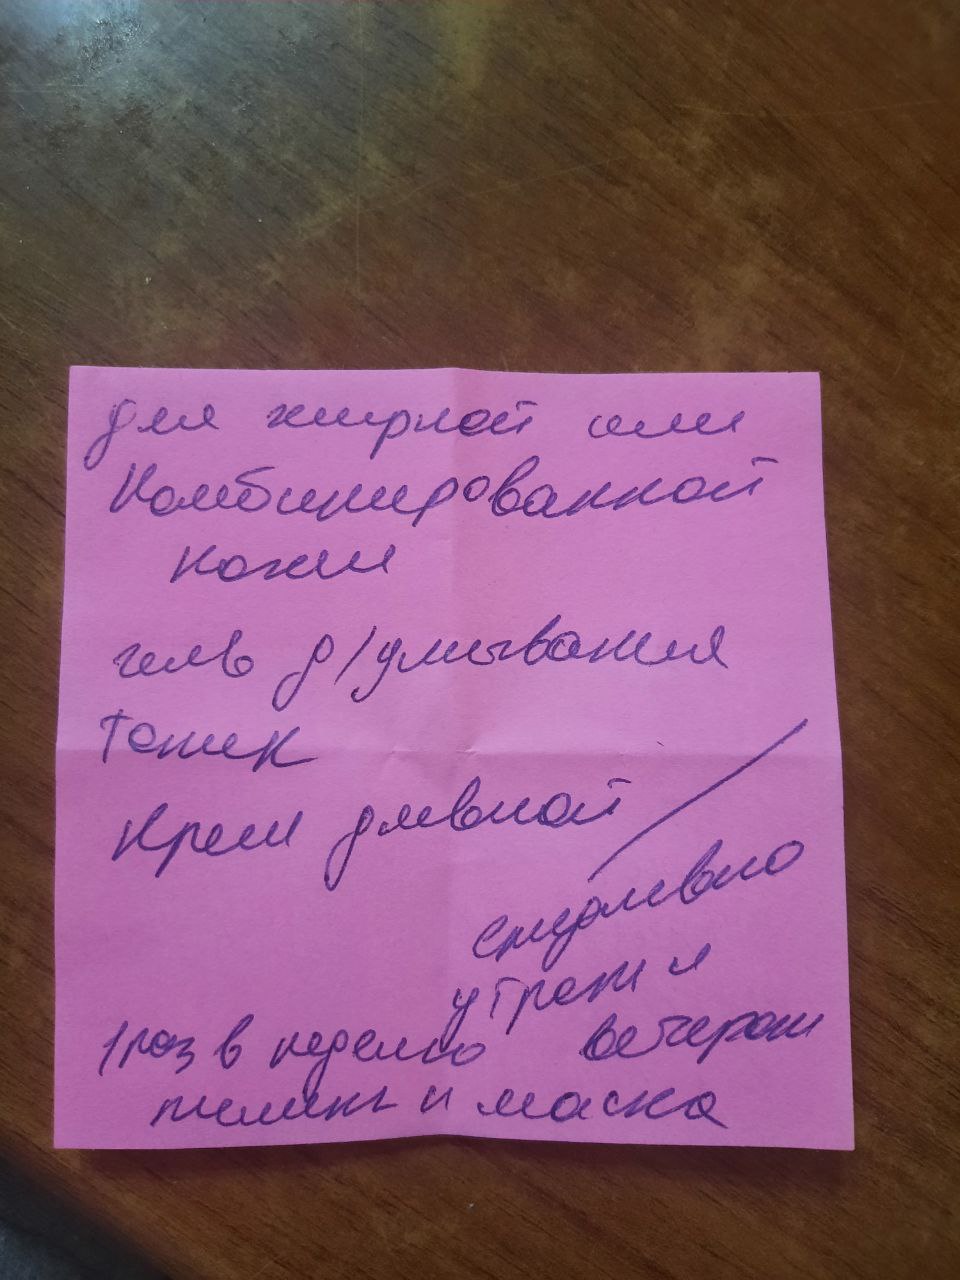 для жирной или
Комбинированной
кожи
гель д/умывания
Тоник
Крем дневной
ежедневно
утром и
вечером
1 раз в неделю
пилинг и маска